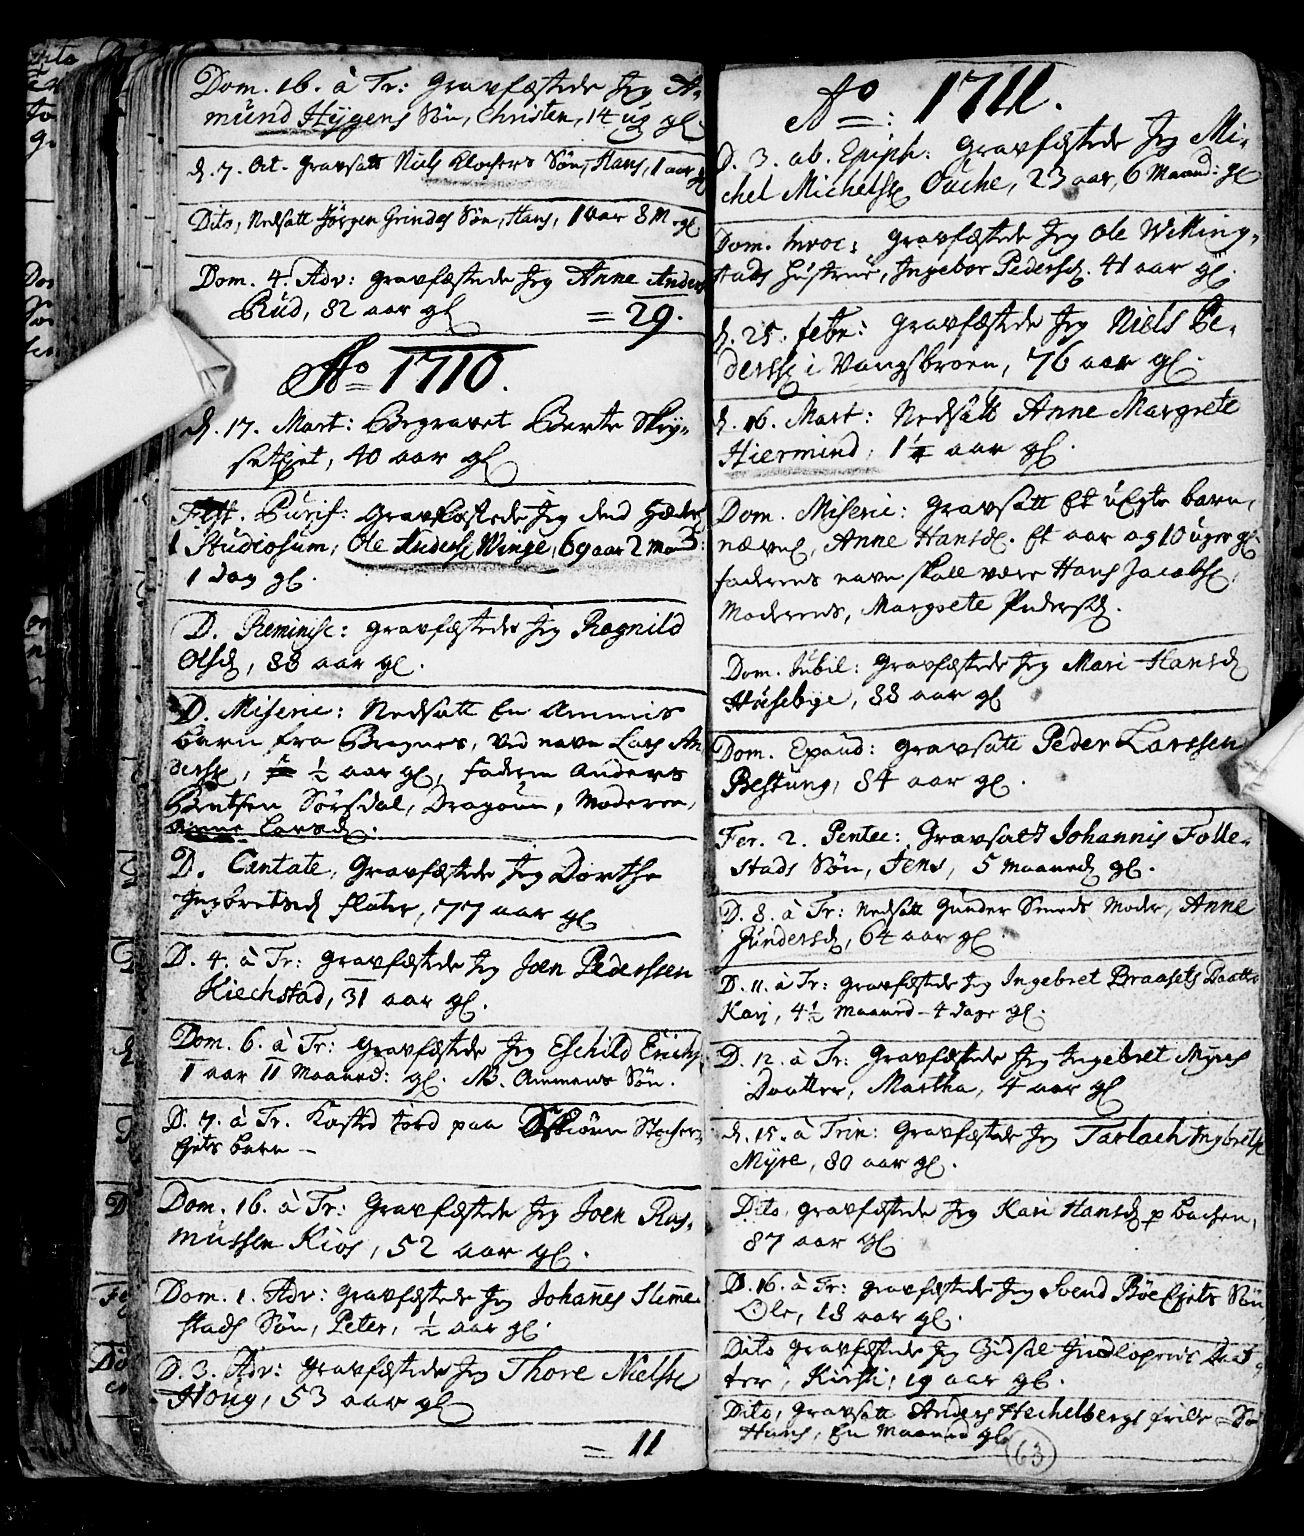 Dom. 16. à Tr: Gravfæstede Jeg A-
mund Hygens Søn, Christen, 14 ug gl
d. 7. Oct. Gravsatt Niels Klochers Søn, Hans, 1 aar gl
Dito, Nedsatt Jørgen Grindes Søn, Hans, 1 aar 8 M. gl.
Dom. 4. Adv: Gravfæstede Jeg Anne Anders
Rud, 82 aar gl = 29.
Ao 1710.
d. 17. Mart: Begravet Berte Skry-
setEjet, 40 aar gl
Fest. Purif: Gravfæstede Jeg dend
Studiosum, Ole Anders Winge, 69 aar 2 Maan:
1 Dag gl.
D. Reminisc: Gravfæstede Jeg Ragnild
Olsd, 88 aar gl.
D. Miseric: Nedsatt En Ammis
barn fra Bragnes, Ved navn Lars An-
derss, ½ aar gl, faderen Anders
Bentsen Sørsdal, Dragoun, Moderen,
Larsd.
D. Cantate, Gravfæstede Jeg Dorthe
Ingbretsd flater, 77 aar gl
D. 4. à Tr: Gravfæstede Jeg Joen Pederssen
Kiechstad, 31 aar gl.
Dom. 6. à Tr: Gravfæstede Jeg Eschild Erichs
1 aar 11 Maaned: gl. NB. Ammens Søn.
D. 7. à Tr. Kasted Jord paa Stocker-
Ejets barn -
Dom. 16. à Tr: Gravfæstede Jeg Joen Ras-
mussen Kios, 52 aar gl.
Dom. 1. Adv: Gravfæstede Jeg Johanes Sleme-
stads Søn, Peter, ½ aar gl.
D. 3. Adv: Gravfæstede Jeg Thore Nielss
Houg, 53 aar gl
= 11
Ao: 1711.
D. 3. ab. Epiph: Gravfæstede Jeg Mi-
chel Michelss Ouche, 23 aar, 6 Maaned: gl
Dom. Invoc: Gravfæstede Jeg Ole Wetting-
stads Hustrue, Ingebor Pedersd. 41 aar gl.
d. 25. febr: Gravfæstede Jeg Niels Pe-
derss i Vangsbroen, 76 aar gl.
d. 16. Mart: Nedsatt Anne Margrete
Hiermind, 1¼ aar gl.
Dom. Miseric: Gravsatt Et uEgte barn,
nævnl, Anne Hansd. Et aar og 10 uger gl.
faderens navn skall være Hans Jacobs,
Moderens, Margrete Pedersd.
Dom. Jubil: Gravfæstede Jeg Mari Hansd
Husebye, 88 aar gl
Dom. Exaud: Gravsatt Peder Larssen
Bestung, 84 aar gl.
Fer. 2. Pentec: Gravsatt Johannis Folle-
stads Søn, Jens, 5 Maaned gl.
D. 8. à Tr: Nedsatt Gunder Smeds Moder, Anne
Gundersd, 64 aar gl.
D. 11. à Tr: Gravfæstede Jeg Ingebret Braasets Daatter
Kari, 4½ Maaned - 4 dage gl.
D. 12. à Tr: Gravfæstede Jeg Ingebret Myres
Daatter, Martha, 4 aar gl
d. 15. à Trin: Gravfæstede Jeg Tarlach Ingbrets
Myre, 80 aar gl.
Dito, Gravfæstede Jeg Kari Hansd p Bachen,
87 aar gl
D. 16. à Tr: Gravfæstede Jeg Svend BøeEjets Søn
Ole, 18 aar gl.
Dito Gravfæstede Jeg Daat-
ter, Kirsti, 19 aar gl.
Dito, Gravsatt Anders Hechelbergs Søn
Hans, En Maaned gl
63